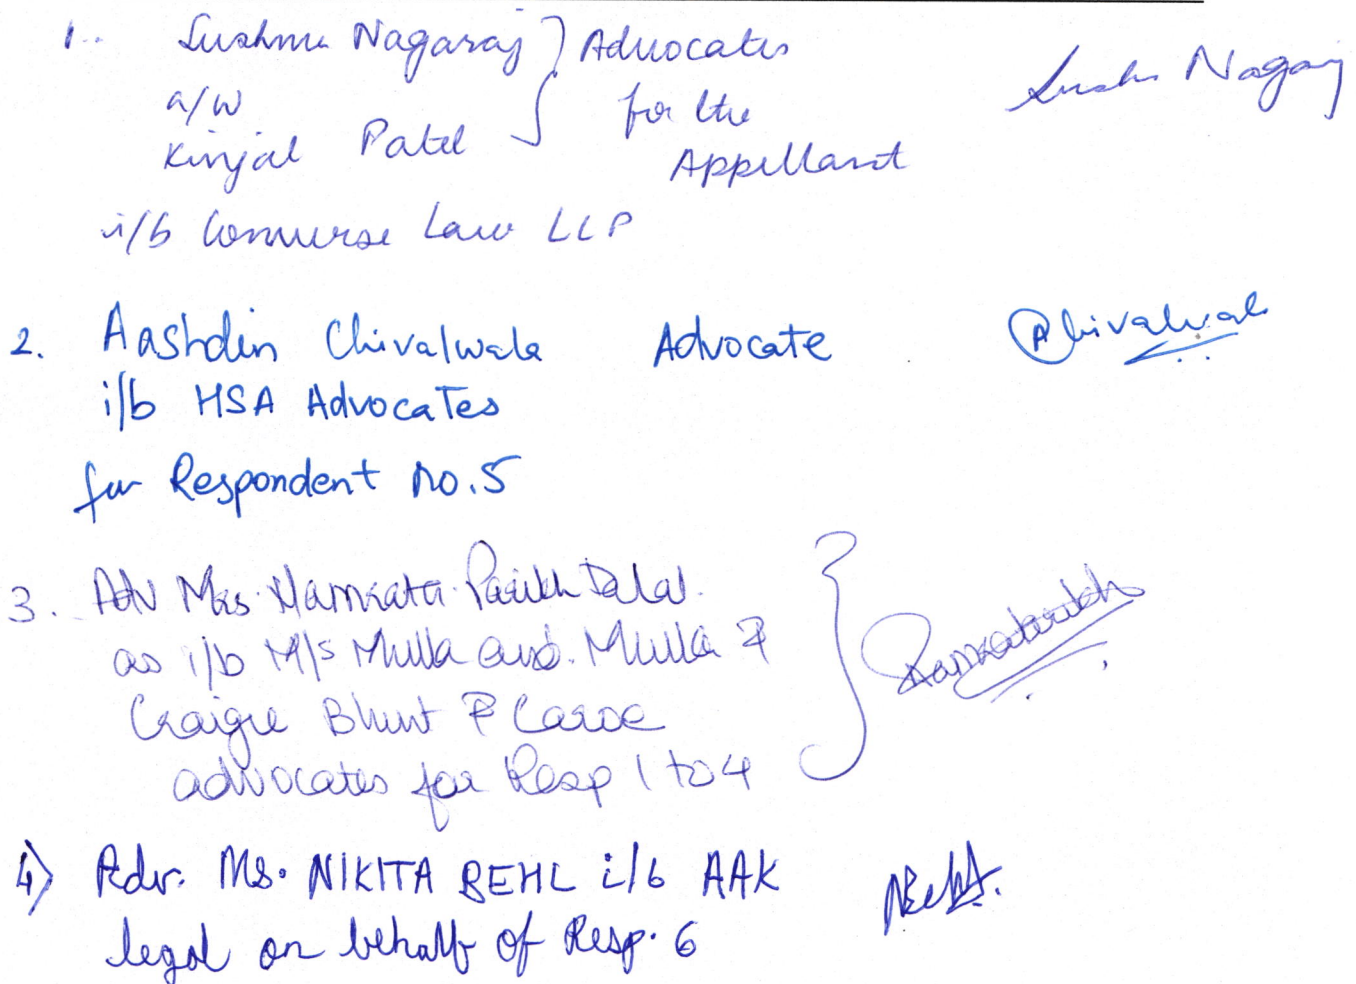 1. Sushma Nagaraj } Advocates
a/w for the
Kinjal Patel Appellant
i/b Converse Law LLP
Sushma Nagaraj
2. Aashdin Chivalwala Advocate AChivalwala
i/b HSA Advocates
for Respondent no.5
3. Adv Mrs. Namrata Parikh Dalal.
as i/b M/s Mulla and Mulla &
Craigie Blunt & Caroe
advocates for Resp 1 to 4
4) Adv. Ms. NIKITA BEHL i/b AAK
legal on behalf of Resp. 6